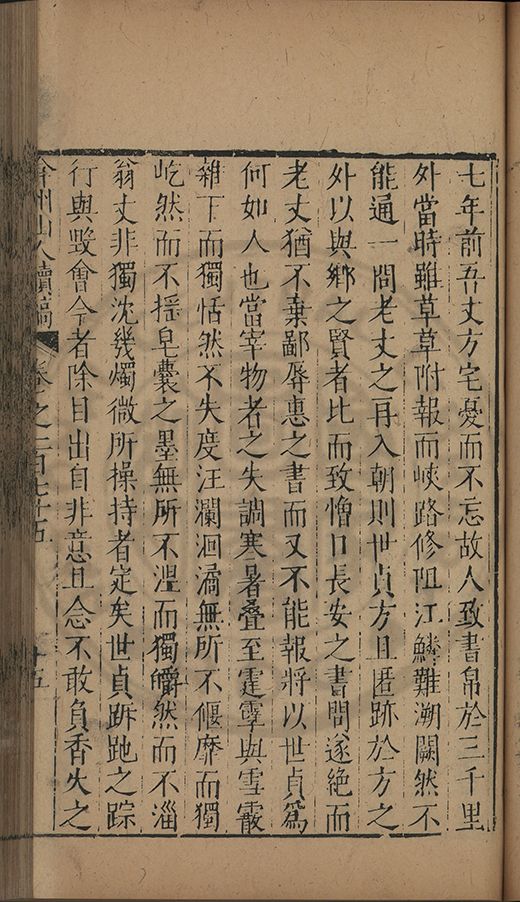 七年前吾丈方宅憂而不忘故人致書帛於三千里
外當時雖草草附報而峽路修阻江鱗難溯闕然不
能通一問老丈之再入朝則世貞方且匿跡於方之
外以與鄉之賢者比而致憎口長安之書問遂絕而
老丈猶不棄鄙辱惠之書而又不能報將以世貞為
何如人也當宰物者之失調寒暑叠至霆雹與雪霰
雜下而獨恬然不失度汪瀾洄潏無所不偃靡而獨
屹然而不搖皂囊之墨無所不湼而獨皭然而不淄
翁丈非獨沈幾燭微所操持者定矣世貞跅跎之踪
行與毀會今者除目出自非意且念不敢負香火之
弇州山人續稿 卷之一百七十五 十五